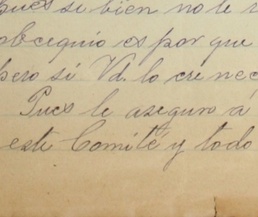 pues si bien no le
obcequio es por que
pero si Vd. lo cre nec
Pues le aseguro á
este Comité y todo